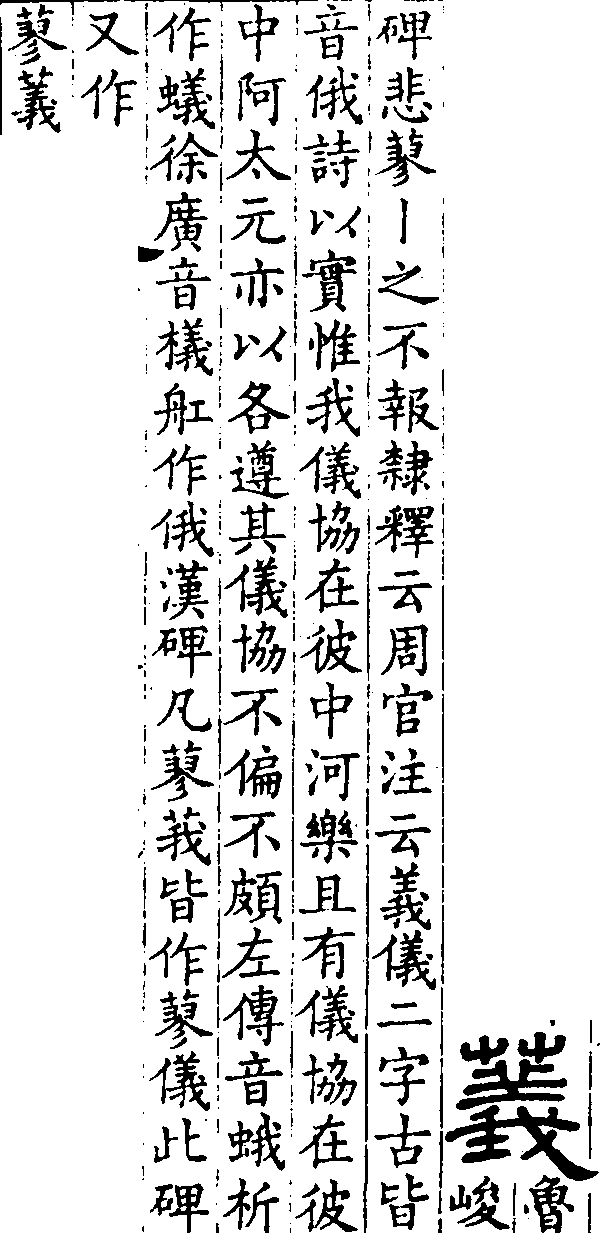 蕤魯峻
碑悲蓼丨之不報隸釋云周官注云義儀二字古皆
音俄詩以實惟我儀協在彼中河樂且有儀協在彼
中阿太元亦以各遵其儀協不偏不頗左傳音蛾析
作蟻徐廣音檥舡作俄漢碑凡蓼莪皆作蓼儀此碑
又作
蓼䕏